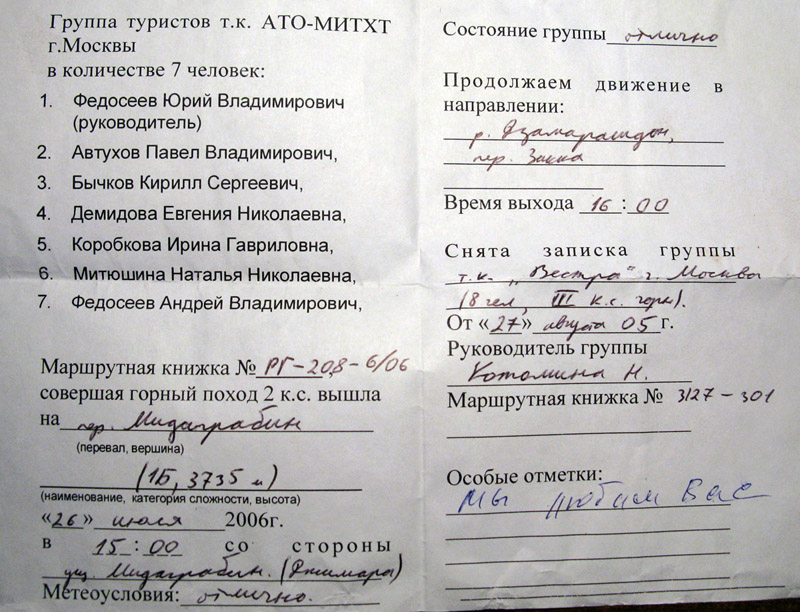 Группа туристов т.к. АТО-МИТХТ
г.Москвы
в количестве 7 человек:
1. Федосеев Юрий Владимирович
(руководитель)
2. Автухов Павел Владимирович,
3. Бычков Кирилл Сергеевич,
4. Демидова Евгения Николаевна,
5. Коробкова Ирина Гавриловна,
6. Митюшина Наталья Николаевна,
7. Федосеев Андрей Владимирович,
Маршрутная книжка № РГ-208-6/06,
совершая горный поход 2 к.с. вышла
на пер. Мидаграбин
(перевал, вершина)
(1Б, 3735 м)
(наименование, категория сложности, высота)
«26» июля 2006г.
в 15:00 со стороны
ущ. Мидаграбин. (Джимара)
Метеоусловия: отлично.
Состояние группы отлично
Продолжаем движение в
направлении:
р. Дзамарашдон,
пер. Закка
Время выхода 16:00
Снята записка группы
т.к. „Вестра" г. Москвы
(8 чел, III к.с. горн).
От «27» августа 05г.
Руководитель группы
Котомина Н.
Маршрутная книжка № 3127-301
Особые отметки:
Мы любим Вас